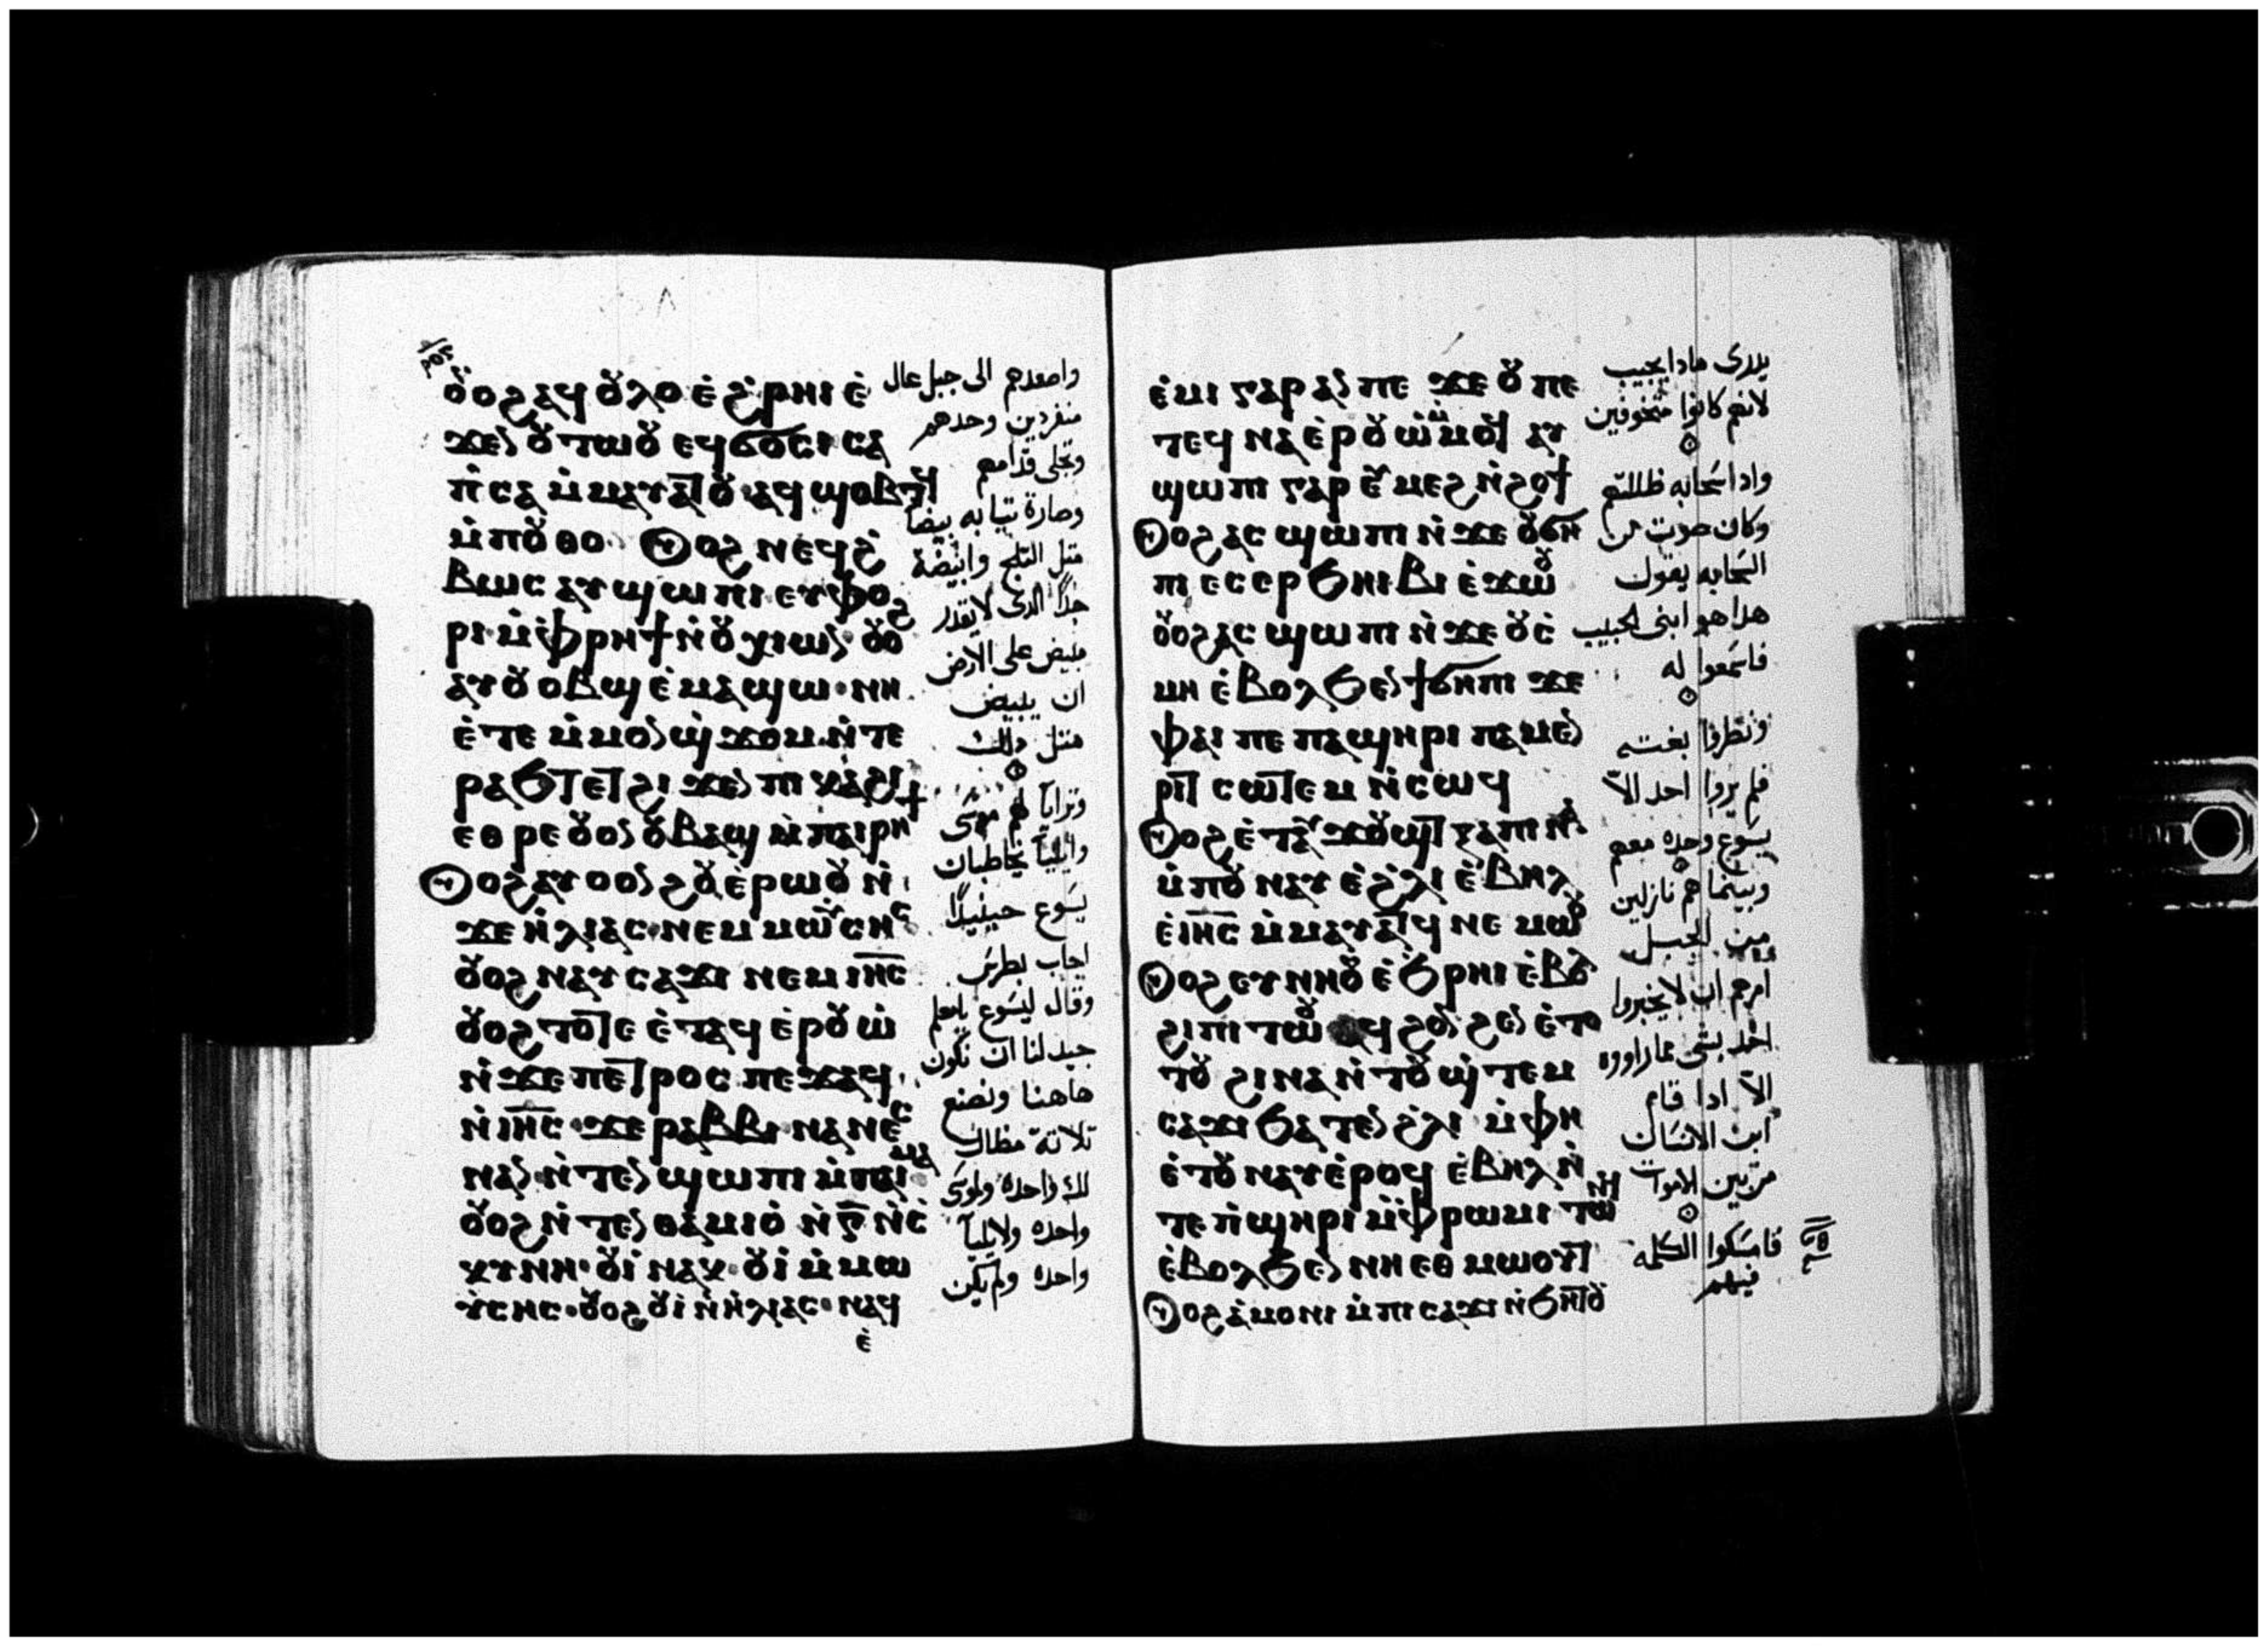 ⲟⲩⲟϩ ⲁϥⲟⲗⲟⲩ ⲉ̀ϩ̀ⲣⲏⲓ ⲉ̀
ϫⲉⲛ ⲟⲩⲧⲱⲟⲩ ⲉϥϭⲟⲥⲓ ⲥⲁ
ⲡ̀ⲥⲁ ⲙ̀ⲙⲁⲩⲁⲧⲟⲩ ⲁϥϣⲟⲃⲧϥ
ⲙ̀ⲡⲟⲩⲙ̀ⲑⲟ ⲟⲩⲟϩ ⲛⲉϥϩ̀
ⲃⲱⲥ ⲁⲩϣⲱⲡⲓ ⲉⲩⲫⲟ
ⲣⲓ ⲙ̀ⲫ̀ⲣⲏϯ ⲛ̀ⲟⲩⲭⲓⲱⲛ ⲟⲩⲟϩ
ⲁⲩⲟⲩⲃⲁϣ ⲉ̀ⲙⲁϣⲱ ⲛⲏ
ⲉ̀ⲧⲉ ⲙ̀ⲙⲟⲛ ϣ̀ϫⲟⲙ ⲛ̀ⲧⲉ
ⲣⲁϧⲧ ⲉⲧϩⲓϫⲉⲛ ⲡⲓⲕⲁϩⲓ
ⲉⲑⲣⲉ ⲟⲩⲟⲛ ⲟⲩⲃⲁϣ ⲙ̀ⲡⲁⲓⲣⲏϯ
ⲟⲩⲟϩ ⲁⲩⲟⲩⲟⲛϩⲟⲩ ⲉ̀ⲣⲱⲟⲩ ⲛ̀
ϫⲉ ⲏ̀ⲗⲓⲁⲥ ⲛⲉⲙ ⲙⲱⲩⲥⲏⲥ
ⲟⲩⲟϩ ⲛⲁⲩⲥⲁϫⲓ ⲛⲉⲙ ⲓⲏ̅ⲥ̅
ⲟⲩⲟϩ ⲧⲟⲧⲉ ⲉ̀ⲧⲁϥⲉ̀ⲣⲟⲩⲱ̀
ⲛ̀ϫⲉ ⲡⲉⲧⲣⲟⲥ ⲡⲉϫⲁϥ
ⲛ̀ⲓⲏ̅ⲥ̅ ϫⲉ ⲣⲁⲃⲃⲓ ⲛⲁⲛⲉⲥ
ⲛⲁⲛ ⲛ̀ⲧⲉⲛϣⲱⲡⲓ ⲙ̀ⲡⲁⲓⲙⲁ
ⲟⲩⲟϩ ⲛ̀ⲧⲉⲛⲑⲁⲙⲓⲟ̀ ⲛ̀ⲅ̅ ⲛ̀ⲥ̀
ⲕⲩⲛⲏ ⲟⲩⲓ̀ ⲛⲁⲕ ⲟⲩⲓ̀ ⲙ̀ⲙⲱ
ⲩ̀ⲥⲏⲥ ⲟⲩⲟϩ ⲟⲩⲓ̀ ⲛ̀ⲏ̀ⲗⲓⲁⲥ ⲛⲁϥ
ⲉ̀
واصعدهم الى جبل عال
منفردين وحدهم
وتجلى قدامهم
وصارة تيابه بيضا
متل التلج وابيضة
جدًا الدى لا يقدر
مبيض على الارض
ان يبيض
متل دلك
وترايا لهم موسى
وايليا يخاطبان
يسوع حينيدًا
اجاب بطرس
وقال ليسوع يامعلم
جيد لنا ان نكون
هاهنا ونصنع
تلاتة مظال
لك واحده ولموسى
واحده ولايليا
واحده ولم يكن
ⲉ̀ⲙⲓ ⲅⲁⲣ ⲁⲛ ⲡⲉ ϫⲉ ⲟⲩ ⲡⲉ
ⲧⲉϥⲛⲁⲉ̀ⲣⲟⲩⲱ̀ ⲙ̀ⲙⲟϥ ⲁⲩ
ϣⲱⲡⲓ ⲅⲁⲣ ⲉⲩⲙⲉϩ ⲛ̀ϩⲟϯ
ⲟⲩⲟϩ ⲁⲥϣⲱⲡⲓ ⲛ̀ϫⲉ ⲟⲩϭⲏ
ⲡⲓ ⲉⲥⲉⲣϧⲏⲓⲃⲓ ⲉ̀ϫⲱⲟⲩ
ⲟⲩⲟϩ ⲁⲥϣⲱⲡⲓ ⲛ̀ϫⲉ ⲟⲩⲥ̀
ⲙⲏ ⲉ̀ⲃⲟⲗϧⲉⲛ ϯϭⲏⲡⲓ ϫⲉ
ⲫⲁⲓ ⲡⲉ ⲡⲁϣⲏⲣⲓ ⲡⲁⲙⲉⲛ
ⲣⲓⲧ ⲥⲱⲧⲉⲙ ⲛ̀ⲥⲱϥ
ⲟⲩⲟϩ ⲉ̀ⲧⲁⲩϫⲟⲩϣⲧ ϧⲁⲡⲓⲛⲁ
ⲙ̀ⲡⲟⲩⲛⲁⲩ ⲉ̀ϩ̀ⲗⲓ ⲉ̀ⲃⲏⲗ
ⲉ̀ⲓⲏ̅ⲥ̅ ⲙ̀ⲙⲁⲩⲁⲧϥ ⲛⲉⲙⲱⲟⲩ
ⲟⲩⲟϩ ⲉⲩⲛⲏⲟⲩ ⲉ̀ϧⲣⲏⲓ ⲉ̀ⲃⲟⲗ
ϩⲓ ⲡⲓⲧⲱⲟⲩ ⲁϥϩⲟⲛϩⲉⲛ ⲉ̀ⲧⲟ
ⲧⲟⲩ ϩⲓⲛⲁ ⲛ̀ⲧⲟⲩϣ̀ⲧⲉⲙ
ⲥⲁϫⲓ ϧⲁⲧⲉⲛ ϩ̀ⲗⲓ ⲙ̀ⲫⲏ
ⲉ̀ⲧⲟⲩⲛⲁⲩ ⲉ̀ⲣⲟϥ ⲉ̀ⲃⲏⲗ ⲛ̀
ⲧⲉ ⲡ̀ϣⲏⲣⲓ ⲙ̀ⲫ̀ⲣⲱⲙⲓ ⲧⲱⲛϥ
ⲉ̀ⲃⲟⲗϧⲉⲛ ⲛⲏⲉⲑⲙⲱⲟⲩⲧ
ⲟⲩⲟϩ ⲁⲩⲁ̀ⲙⲟⲛⲓ ⲙ̀ⲡⲓⲥⲁϫⲓ ⲛ̀ϧⲏⲧⲟⲩ
يدرى مادا يجيب
لانهم كانوا متخوفين
وادا سحابه ظللتهم
وكان صوت من
السحابه يقول
هدا هو ابنى الحبيب
فاسمعوا له
ونظروا بغتـه
فلم يروا احد الّا
يسوع وحده معهم
وبينما هم نازلين
من الجبل
امرهم ان لا يخبروا
احد بشى مما راووه
الّا ادا قام
ابن الانسان
من بين الاموات
فامسكوا الكلمه
فيهم